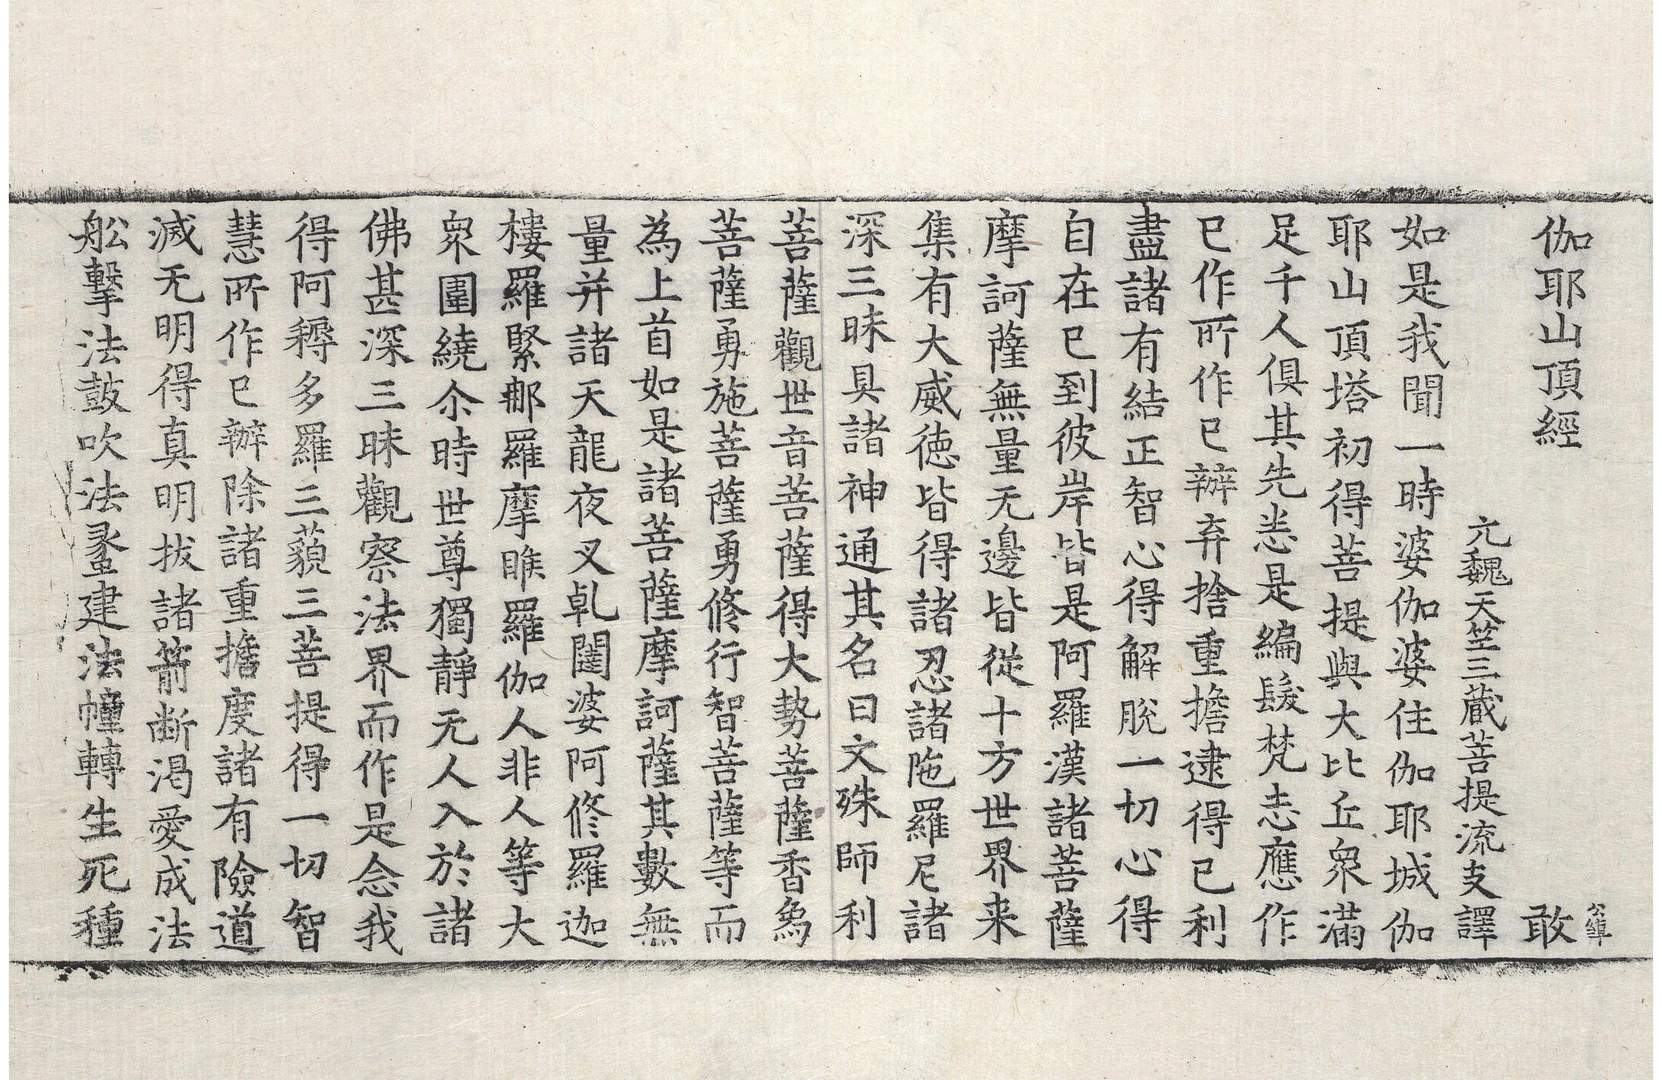 伽耶山頂經 敢
元魏天竺三藏菩提流支譯
如是我聞一時婆伽婆住伽耶城伽
耶山頂塔初得菩提與大比丘衆滿
足千人俱其先悉是編髮梵志應作
已作所作已辦弃捨重擔逮得已利
盡諸有結正智心得解脫一切心得
自在已到彼岸皆是阿羅漢諸菩薩
摩訶薩無量无邊皆從十方世界来
集有大威徳皆得諸忍諸陁羅尼諸
深三昧具諸神通其名曰文殊師利
菩薩觀世音菩薩得大勢菩薩香烏
菩薩勇施菩薩勇修行智菩薩等而
為上首如是諸菩薩摩訶薩其數無
量并諸天龍夜叉乹闥婆阿修羅迦
樓羅緊那羅摩睺羅伽人非人等大
衆圍繞尒時世尊獨靜无人入於諸
佛甚深三昧觀察法界而作是念我
得阿耨多羅三藐三菩提得一切智
慧所作已辦除諸重擔度諸有險道
滅无明得真明拔諸箭断渴愛成法
舩擊法鼓吹法蠡建法幢轉生死種